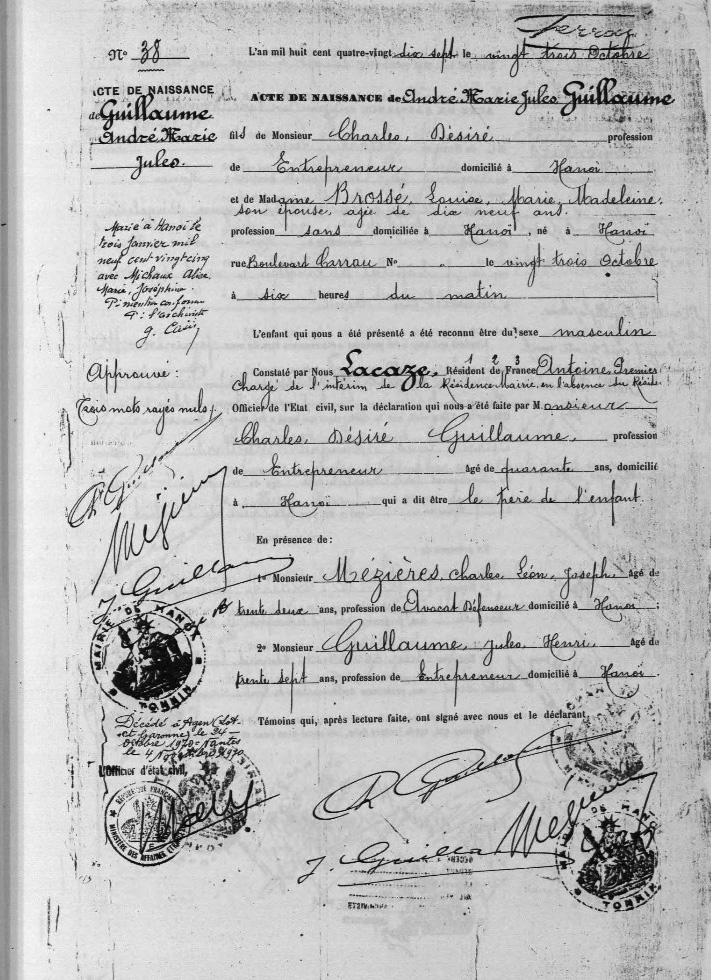 Ferray
Nº 38
L'an mil huit cent quatre-vingt dix sept le vingt trois Octobre
ACTE DE NAISSANCE
de Guillaume
André Marie
Jules.
ACTE DE NAISSANCE de André Marie Jules Guillaume
fils de Monsieur Charles, Désiré profession
de Entrepreneur domicilié à Hanoï
et de Madame Brossé, Louise, Marie, Madeleine,
son épouse, agée de dix neuf ans.
profession sans domiciliée à Hanoï, né à Hanoï
rue Boulevard Carrau Nº " le vingt trois Octobre
à six heures du matin
L'enfant qui nous a été présenté a été reconnu être du sexe masculin
Marié à Hanoï le
trois Janvier mil
neuf cent vingt cinq
avec Michaux Alice
Marie, Joséphine.
Pr mention conforme
P: l'archiviste
Approuvé :
Trois mots rayés nuls.
Constaté par Nous Lacaze, Résident de France Antoine, Premier
1 2 3
Chargé de l'intérim de la Résidence Mairie, en l'absence du Réside
Officier de l'Etat civil, sur la déclaration qui nous a été faite par Monsieur
Charles, Désiré Guillaume, profession
de Entrepreneur âgé de quarante ans, domicilié
à Hanoï qui a dit être le père de l'enfant.
En présence de :
1º Monsieur Mézières, Charles, Léon, Joseph, âgé de
trente deux ans, profession de Avocat Défenseur domicilié à Hanoï ;
2º Monsieur Guillaume, Jules, Henri, âgé de
trente sept ans, profession de Entrepreneur domicilié à Hanoï.
Témoins qui, après lecture faite, ont signé avec nous et le déclarant.
Ch Guillaume
Mézières
J. Guillaume
MAIRIE DE HANOI
TONKIN
Décédé à Agen (Lot
et Garonne) le 24
Octobre 1970 - Nantes
le 4 Novembre 1970
L'Officier d'état civil,
RÉPUBLIQUE FRANÇAISE
MINISTÈRE DES AFFAIRES ÉTR
Ch Guillaume
J. Guillaume Mézières
MAIRIE DE HANOI
TONKIN